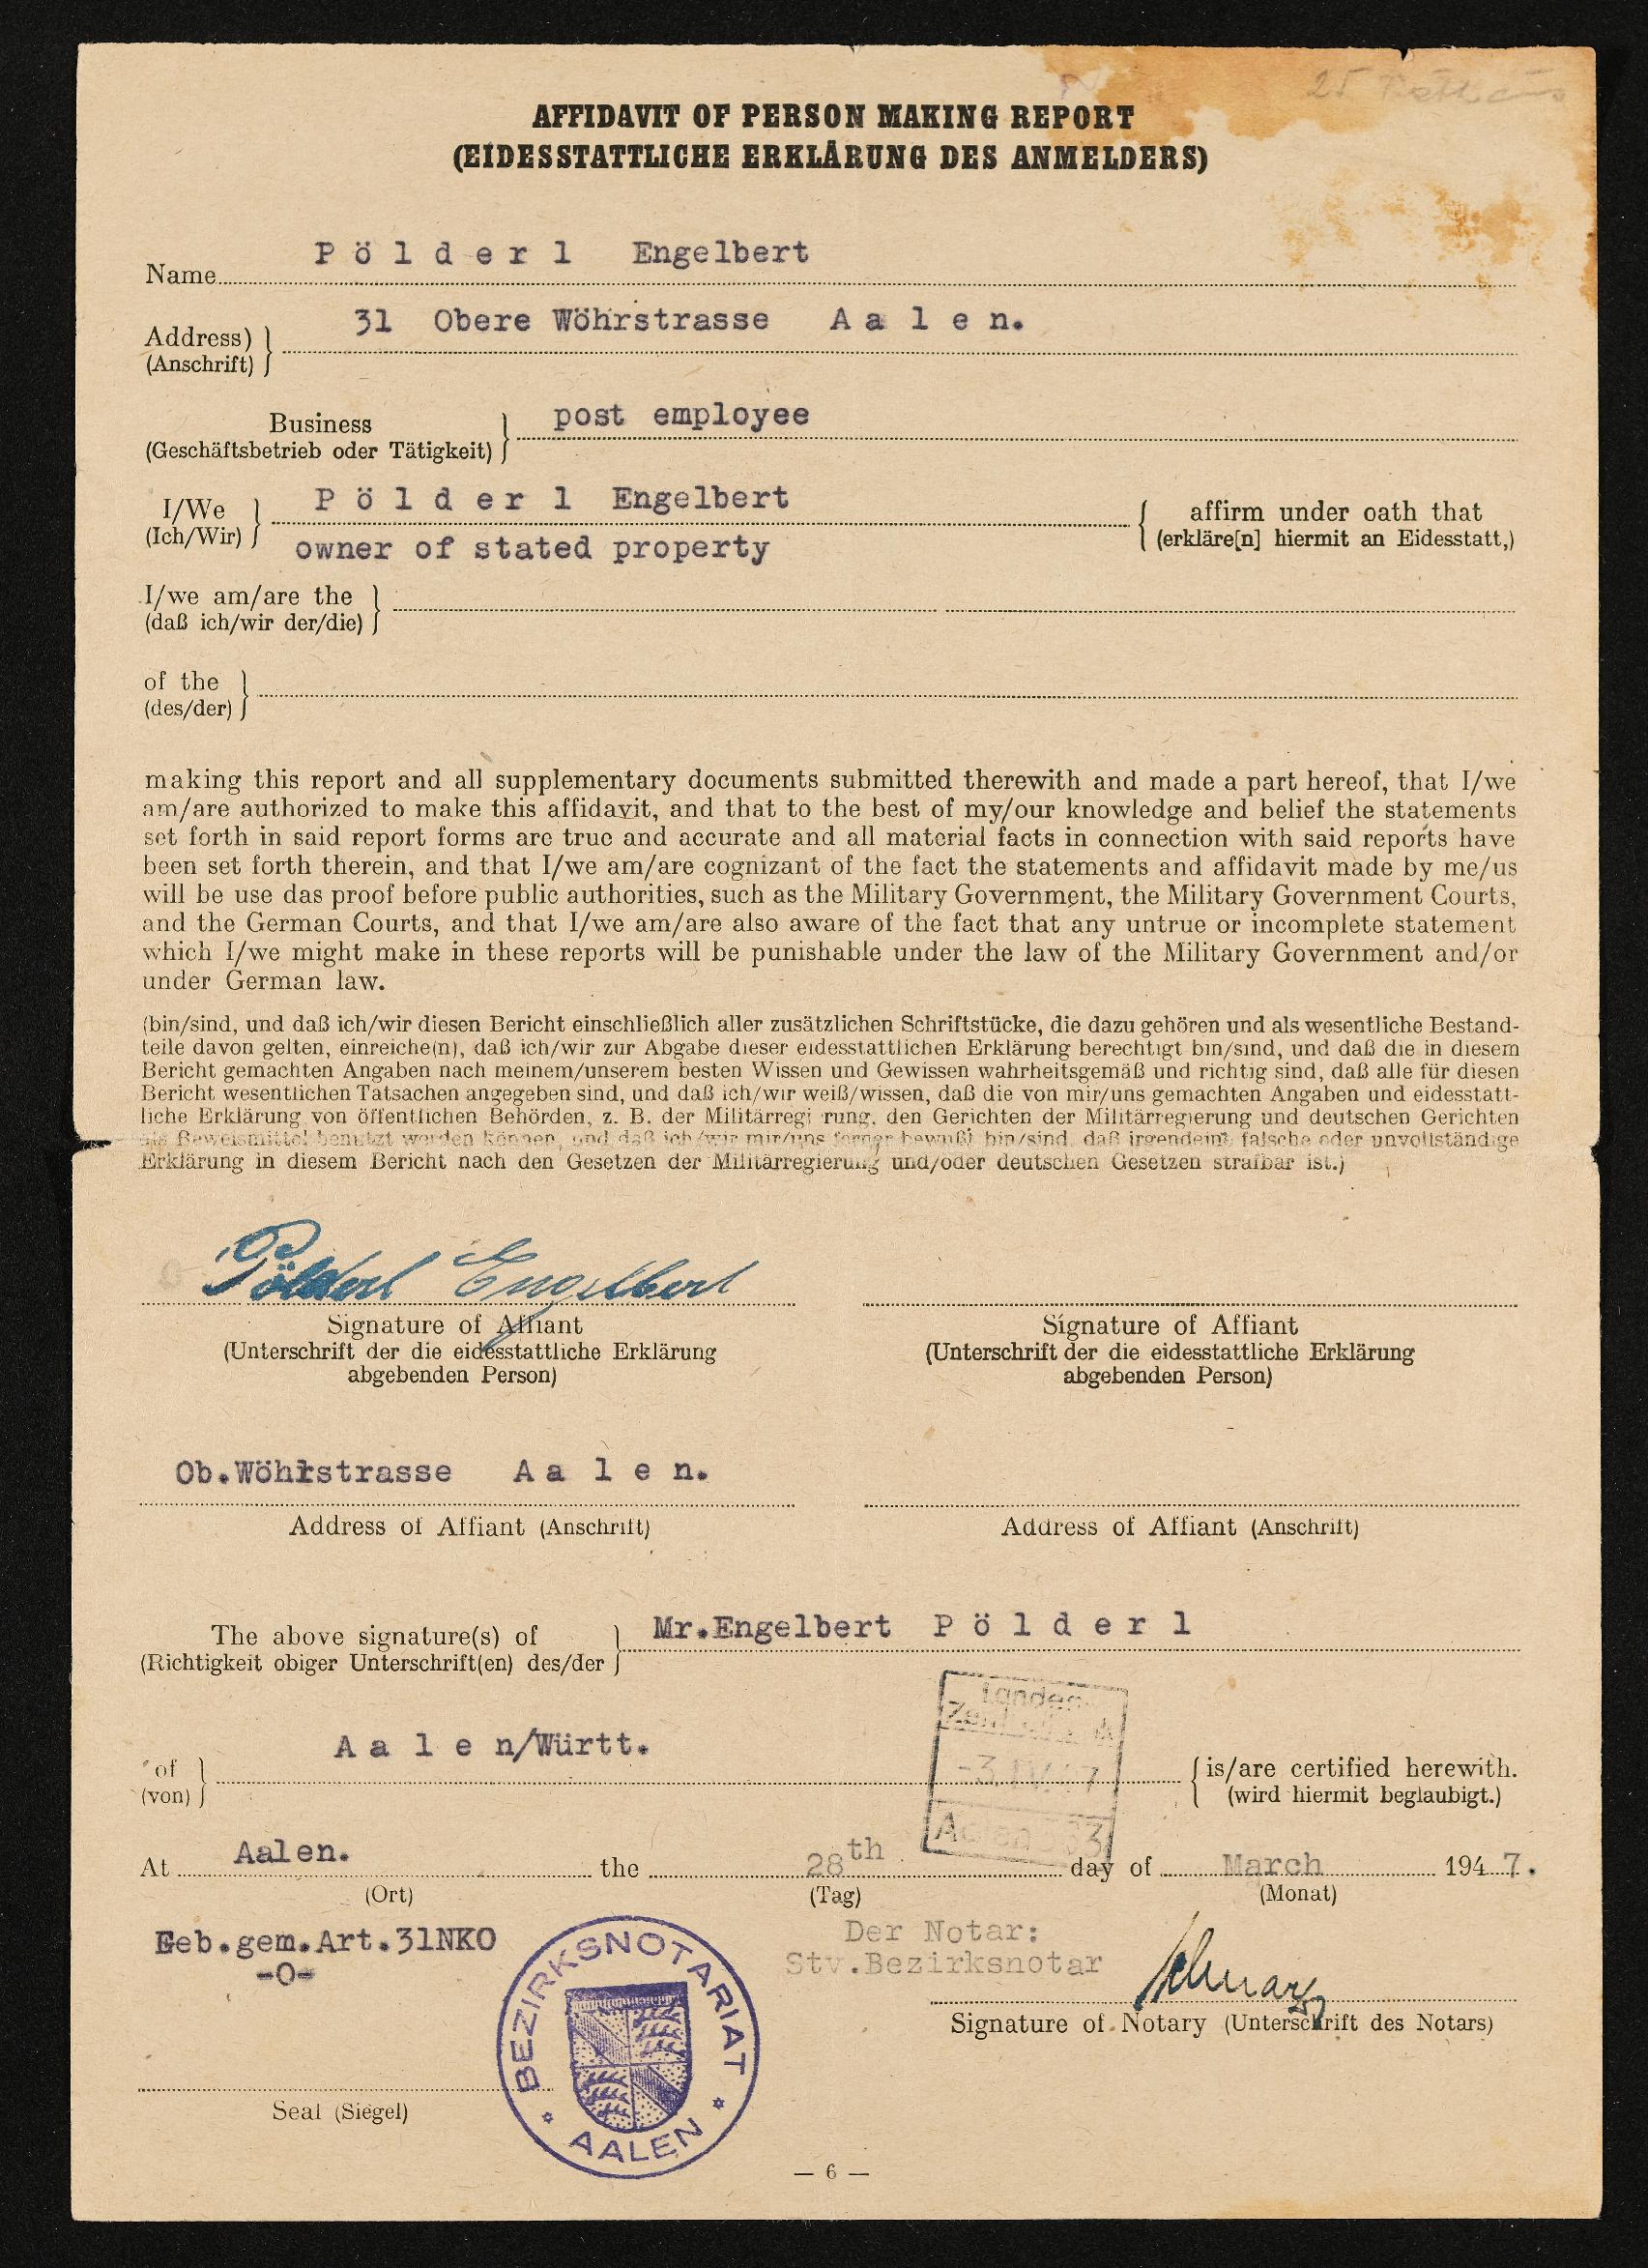 25
AFFIDAVIT OF PERSON MAKING REPORT
(EIDESSTATTLICHE ERKLÄRUNG DES ANMELDERS)
Name P ö l d e r l Engelbert
Address) 31 Obere Wöhrstrasse A a l e n.
(Anschrift)
Business post employee
(Geschäftsbetrieb oder Tätigkeit)
I/We P ö l d e r l Engelbert affirm under oath that
(Ich/Wir) (erkläre[n] hiermit an Eidesstatt,)
owner of stated property
I/we am/are the
(daß ich/wir der/die)
of the
(des/der)
making this report and all supplementary documents submitted therewith and made a part hereof, that I/we
am/are authorized to make this affidavit, and that to the best of my/our knowledge and belief the statements
set forth in said report forms are true and accurate and all material facts in connection with said reports have
been set forth therein, and that I/we am/are cognizant of the fact the statements and affidavit made by me/us
will be use das proof before public authorities, such as the Military Government, the Military Government Courts,
and the German Courts, and that I/we am/are also aware of the fact that any untrue or incomplete statement
which I/we might make in these reports will be punishable under the law of the Military Government and/or
under German law.
(bin/sind, und daß ich/wir diesen Bericht einschließlich aller zusätzlichen Schriftstücke, die dazu gehören und als wesentliche Bestand-
teile davon gelten, einreiche(n), daß ich/wir zur Abgabe dieser eidesstattlichen Erklärung berechtigt bin/sind, und daß die in diesem
Bericht gemachten Angaben nach meinem/unserem besten Wissen und Gewissen wahrheitsgemäß und richtig sind, daß alle für diesen
Bericht wesentlichen Tatsachen angegeben sind, und daß ich/wir weiß/wissen, daß die von mir/uns gemachten Angaben und eidesstatt-
liche Erklärung von öffentlichen Behörden, z. B. der Militärregi rung, den Gerichten der Militärregierung und deutschen Gerichten
als Beweismittel benutzt werden können, und daß ich/wir mir/uns ferner bewußt bin/sind, daß irgendeine falsche oder unvollständige
Erklärung in diesem Bericht nach den Gesetzen der Militärregierung und/oder deutschen Gesetzen strafbar ist.)
Pölderl Engelbert
Signature of Affiant Signature of Affiant
(Unterschrift der die eidesstattliche Erklärung (Unterschrift der die eidesstattliche Erklärung
abgebenden Person) abgebenden Person)
Ob.Wöhrstrasse A a l e n.
Address of Affiant (Anschrift) Address of Affiant (Anschrift)
The above signature(s) of Mr.Engelbert P ö l d e r l
(Richtigkeit obiger Unterschrift(en) des/der
Landes-
-3. IV. 47
Aalen 33
of A a l e n/Württ. is/are certified herewith.
(von) (wird hiermit beglaubigt.)
At Aalen. the 28th day of March 1947.
(Ort) (Tag) (Monat)
Geb.gem.Art.31NKO
-0-
Der Notar:
Stv.Bezirksnotar
Schwarz
Signature of Notary (Unterschrift des Notars)
BEZIRKSNOTARIAT
AALEN
Seal (Siegel)
— 6 —